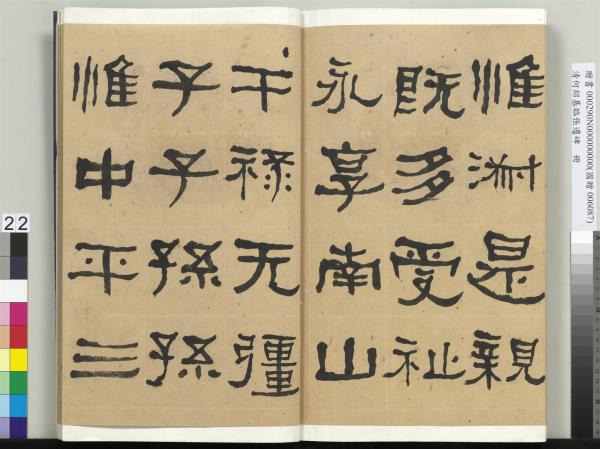 惟淑是親
既多受祉
永享南山
干祿无疆
子子孫孫
惟中平三
贈書 000290N000000000(國贈 006087)
清何紹基臨張遷碑 冊
22